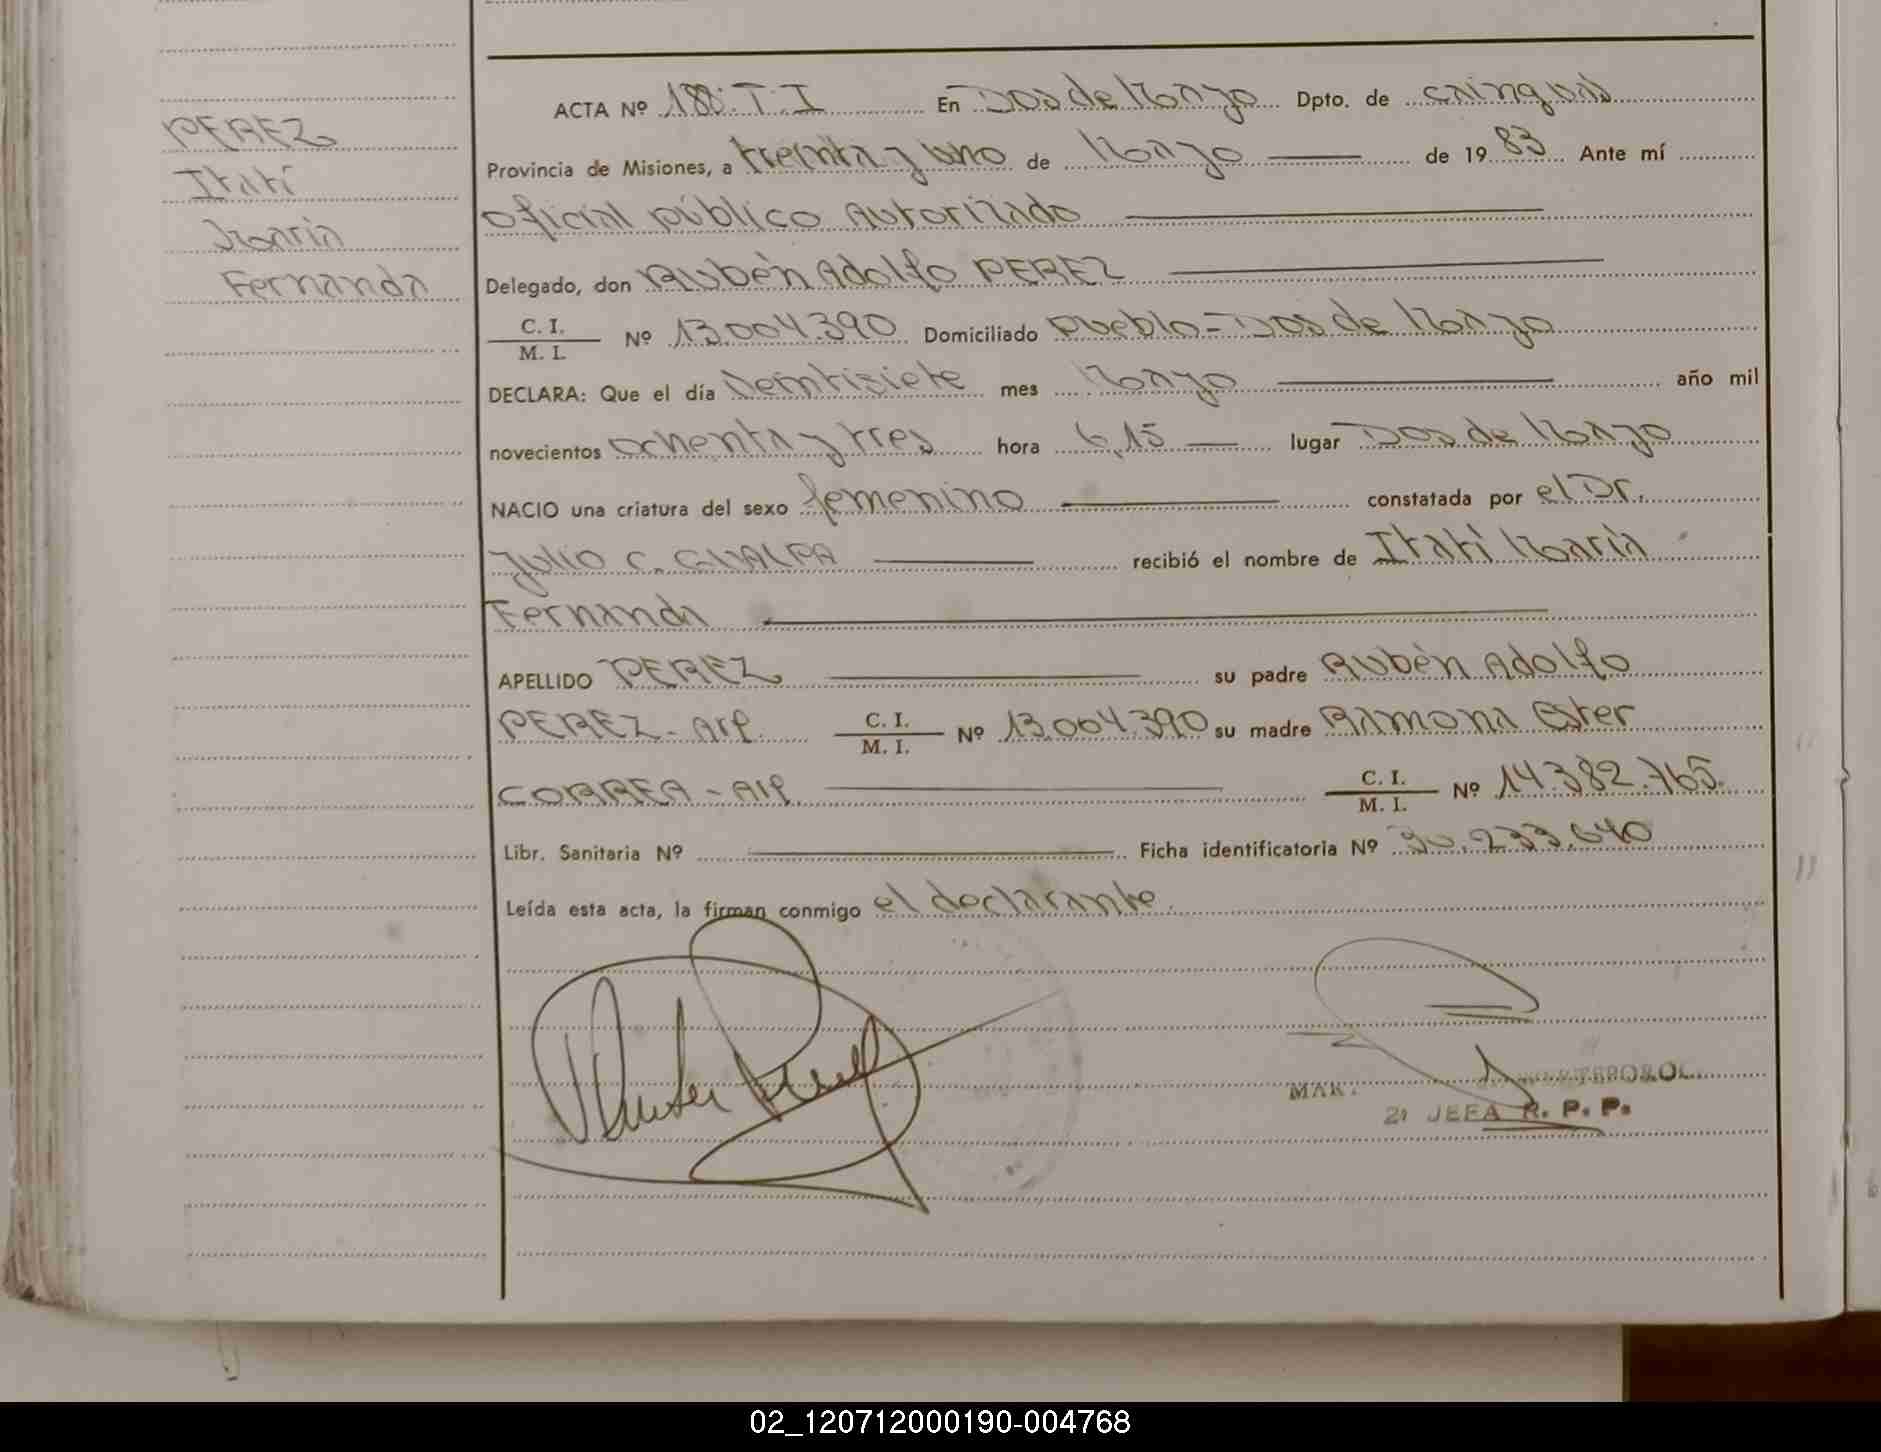 PEREZ
Itatí
María
Fernanda
ACTA Nº 188. T. I En Dos de Mayo Dpto. de Cainguás
Provincia de Misiones, a treinta y uno de Mayo de 1983 Ante mí
Oficial público Autorizado
Delegado, don Rubén Adolfo PEREZ
C. I.
M. I. Nº 13.004.390 Domiciliado Pueblo-Dos de Mayo
DECLARA: Que el día Veintisiete mes Mayo año mil
novecientos ochenta y tres hora 6,15 lugar Dos de Mayo
NACIO una criatura del sexo femenino constatada por el Dr.
Julio C. GUALPA recibió el nombre de Itatí María
Fernanda
APELLIDO PEREZ su padre Rubén Adolfo
PEREZ - Arg. C. I.
M. I. Nº 13.004.390 su madre Ramona Ester
CORREA - Arg. C. I.
M. I. Nº 14.382.765.
Libr. Sanitaria Nº Ficha identificatoria Nº 30.233.040
Leída esta acta, la firman conmigo el declarante.
MAR.
JEFA R. P. P.
02_120712000190-004768